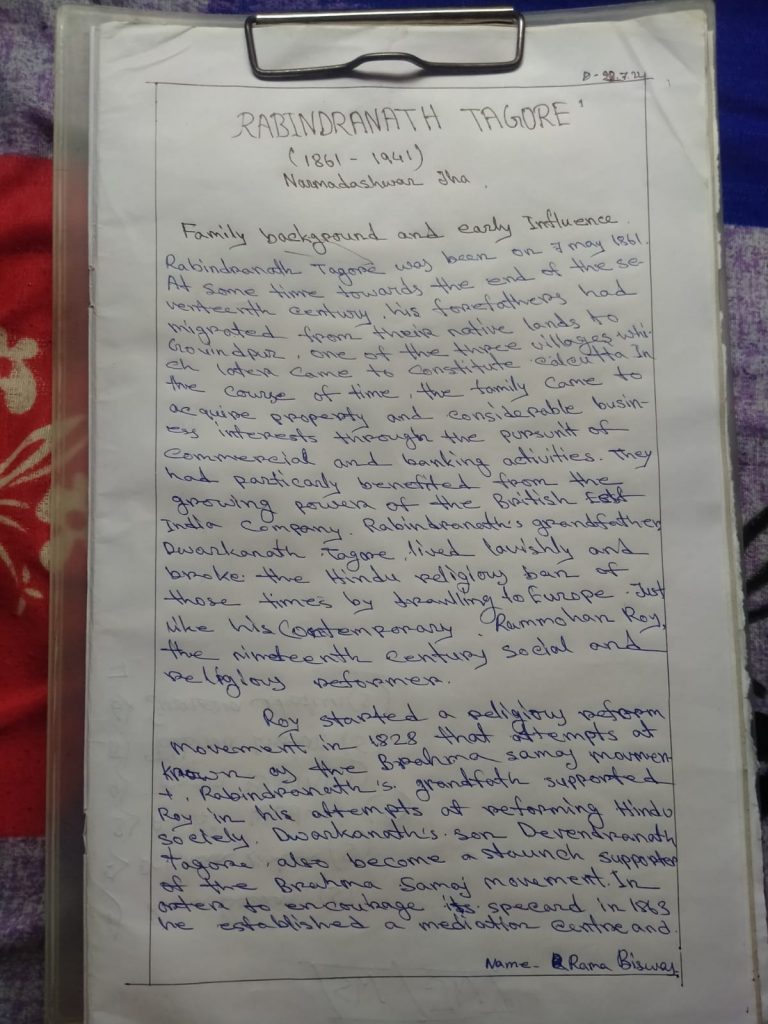 D- 28.7.22
RABINDRANATH TAGORE
(1861 - 1941)
Narmadashwar Jha.
Family background and early Influence.
Rabindranath Tagore was been on 7 may 1861.
At some time towards the end of the se-
venteenth century, his forefathers had
migrated from their native lands to
Govindpur, one of the three villages whi-
ch later came to constitute calcutta In
the course of time, the family came to
acquire property and considerable busin-
ess interests through the pursunit of
commercial and banking activities. They
had particarly benefited from the
growing power of the British East
India Company. Rabindranath's grandfather,
Dwarkanath Tagore, lived lavishly and
broke the Hindu religious ban of
those times by travlling to Europe. Just
like his Contemporary, Rammohan Roy,
the nineteenth century social and
religious reformer.
Roy started a religious reform
movement in 1828 that attempts at
known as the Brahma samaj movmen
t. Rabindranath's grandfath supported
Roy in his attempts at reforming Hindu
soclely. Dwarkanath's son Devendranath
Tagore, also become a staunch supporter
of the Brahma Samaj movement. In
order to encourage its specard in 1863
he established a mediation centre and
Name- Rama Biswas